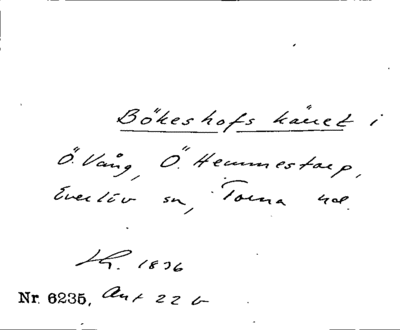 Bökeshofs käret i
Ö. Vång, Ö. Hemmestorp,
Everlöv sn, Torna hd.
Lh. 1836
Nr. 6235, Art 22 b